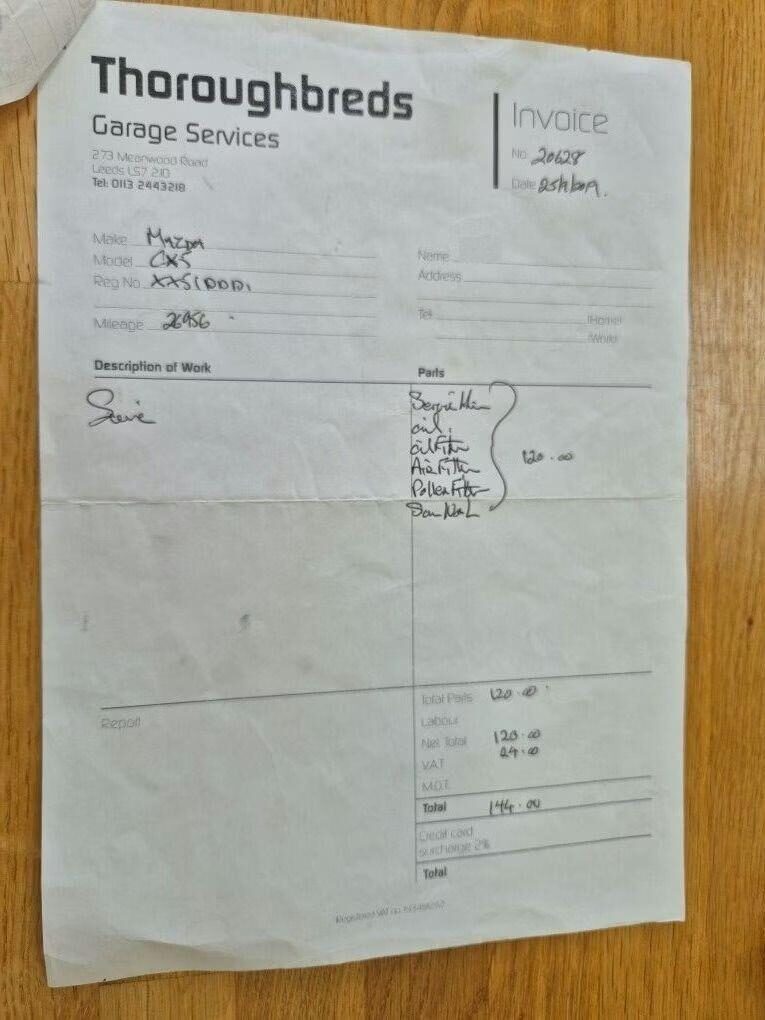 Thoroughbreds
Garage Services
273 Meanwood Road
Leeds LS7 2JD
Tel: 0113 2443218
Invoice
No. 20628
Date
Make Mazda
Model CX5
Reg No
Mileage 26956
Name
Address
Tel (Home)
(Work)
Description of Work
Parts
Service
oil
oil Filter
Air Filter
Pollen Filter
120.00
Total Parts 120.00
Labour
Net Total 120.00
V.A.T 24.00
M.O.T.
Total 144.00
Credit card
surcharge 2%
Total
Report
Registered VAT no.